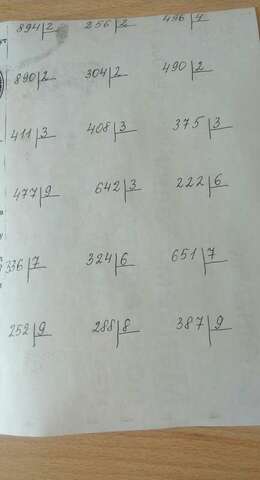 894|2 256|2 496|4
890|2 304|2 490|2
411|3 408|3 375|3
477|9 642|3 222|6
336|7 324|6 651|7
252|9 288|8 387|9